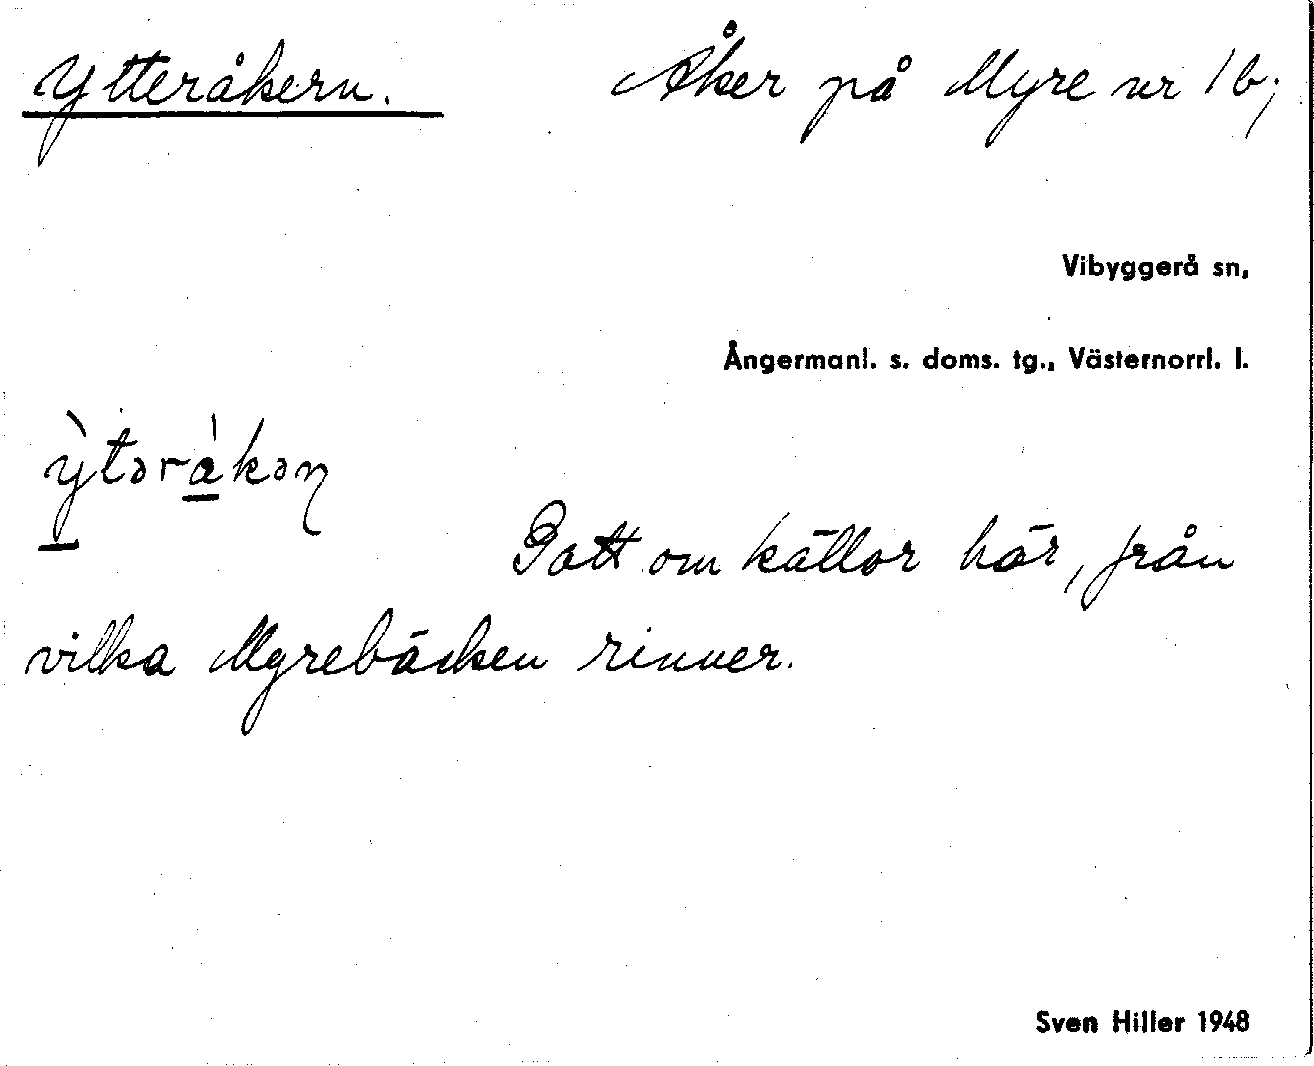 Ytteråkern. Åker på Myre nr 1b;
Vibyggerå sn,
Ångermanl. s. doms. tg., Västernorrl. l.
ỳtəràkəɳ
Gott om källor här, från
vilka Myrebäcken rinner.
Sven Hiller 1948